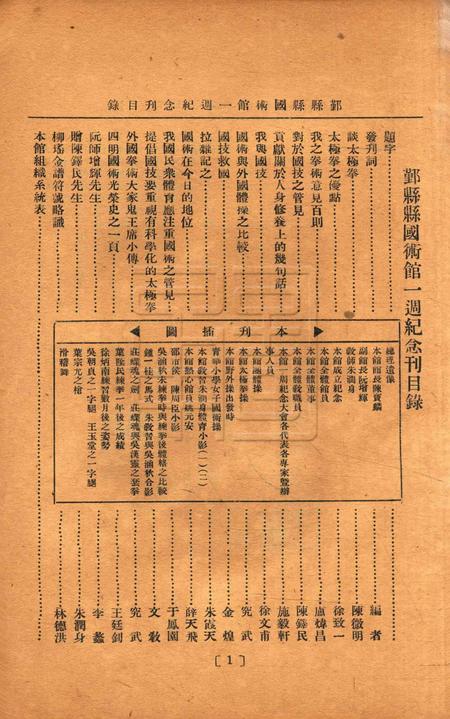 鄞縣縣國術館一週紀念刊目錄
鄞縣縣國術館一週紀念刊目錄
題字
發刊詞……編者
談太極拳……陳微明
太極拳之優點……徐致一
我之拳術意見百則……盧煒昌
對於國技之管見……陳鐸民
貢獻關於人身修養上的幾句話……施毅軒
我與國技……徐文甫
國術與外國體操之比較……金煌
國技救國……朱霞天
拉雜記之……薛天飛
國術在今日的地位……于鳳園
我國民衆體育應注重國術之管見……究武
提倡國技要重視有科學化的太極拳……文敎
外國拳術大家鬼王席小傳……究武
四明國術光榮史之一頁……王廷釗
阮師增輝先生……李蠡
贈陳鐸民先生……朱潤身
柳瑤金譜符號略識……林德洪
本館組織系統表
本刊插圖
總理遺像
本館館長陳寶麟
副館長阮增輝
敎務長朱潤身
本館成立紀念
本館全體館員
本館全體董事
本館全體敎職員
本館一周紀念大會各代表各專家暨辦
事人員
本館團體操
本館太極拳操
本館野外操出發時
菁華小學女子國術操
本館敎習朱潤身體育小影(一)(二)
本館熱心館員姚元安
邵前侯 陳周臣小影
吳涵秋未練拳時與練拳後體轄之比較
鍾一桂之馬式 朱敎習與吳涵秋合影
莊蝶魂之劍 莊蝶魂與吳漢靈之套拳
葉隆民練拳一年後之成績
徐炳南練習數月後之姿勢
吳朝良之一字腿 王玉堂之一字腿
葉宗元之槍
滑稽舞
[1]